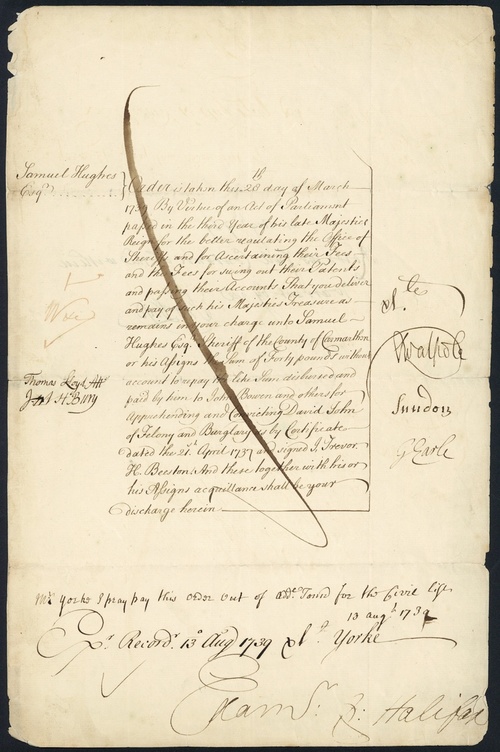 Samuel Hughes
Esqr.
Order is taken this 28th day of March
173 By Virtue of an Act of Parliament
passed in the third Year of his late Majesties
Reign for the better regulating the Office of
Sheriffs and for Ascertaining their Fees
and the Fees for suing out their Patents
and passing their Accounts That you deliver
and pay of such his Majesties Treasure as
remains in your charge unto Samuel
Hughes Esq. Sheriff of the County of Carmarthen
or his Assigns the Sum of Forty pounds without
account to repay the like Sum disbursed and
paid by him to John Bowen and others for
Apprehending and Convicting David John
of Felony and Burglary as by Certificate
dated the 21st April 1737 and signed J. Trevor
H. Beeston: And these together with his or
his Assigns acquittance shall be your
discharge herein
Thomas Loyd Att
RWalpole
Sundon
G Earle
Mr. Yorke I pray pay this order out of for the Civil list
13 augst 1739
Recordr. 13o Aug 1739
Yorke
Examr.
Halifax